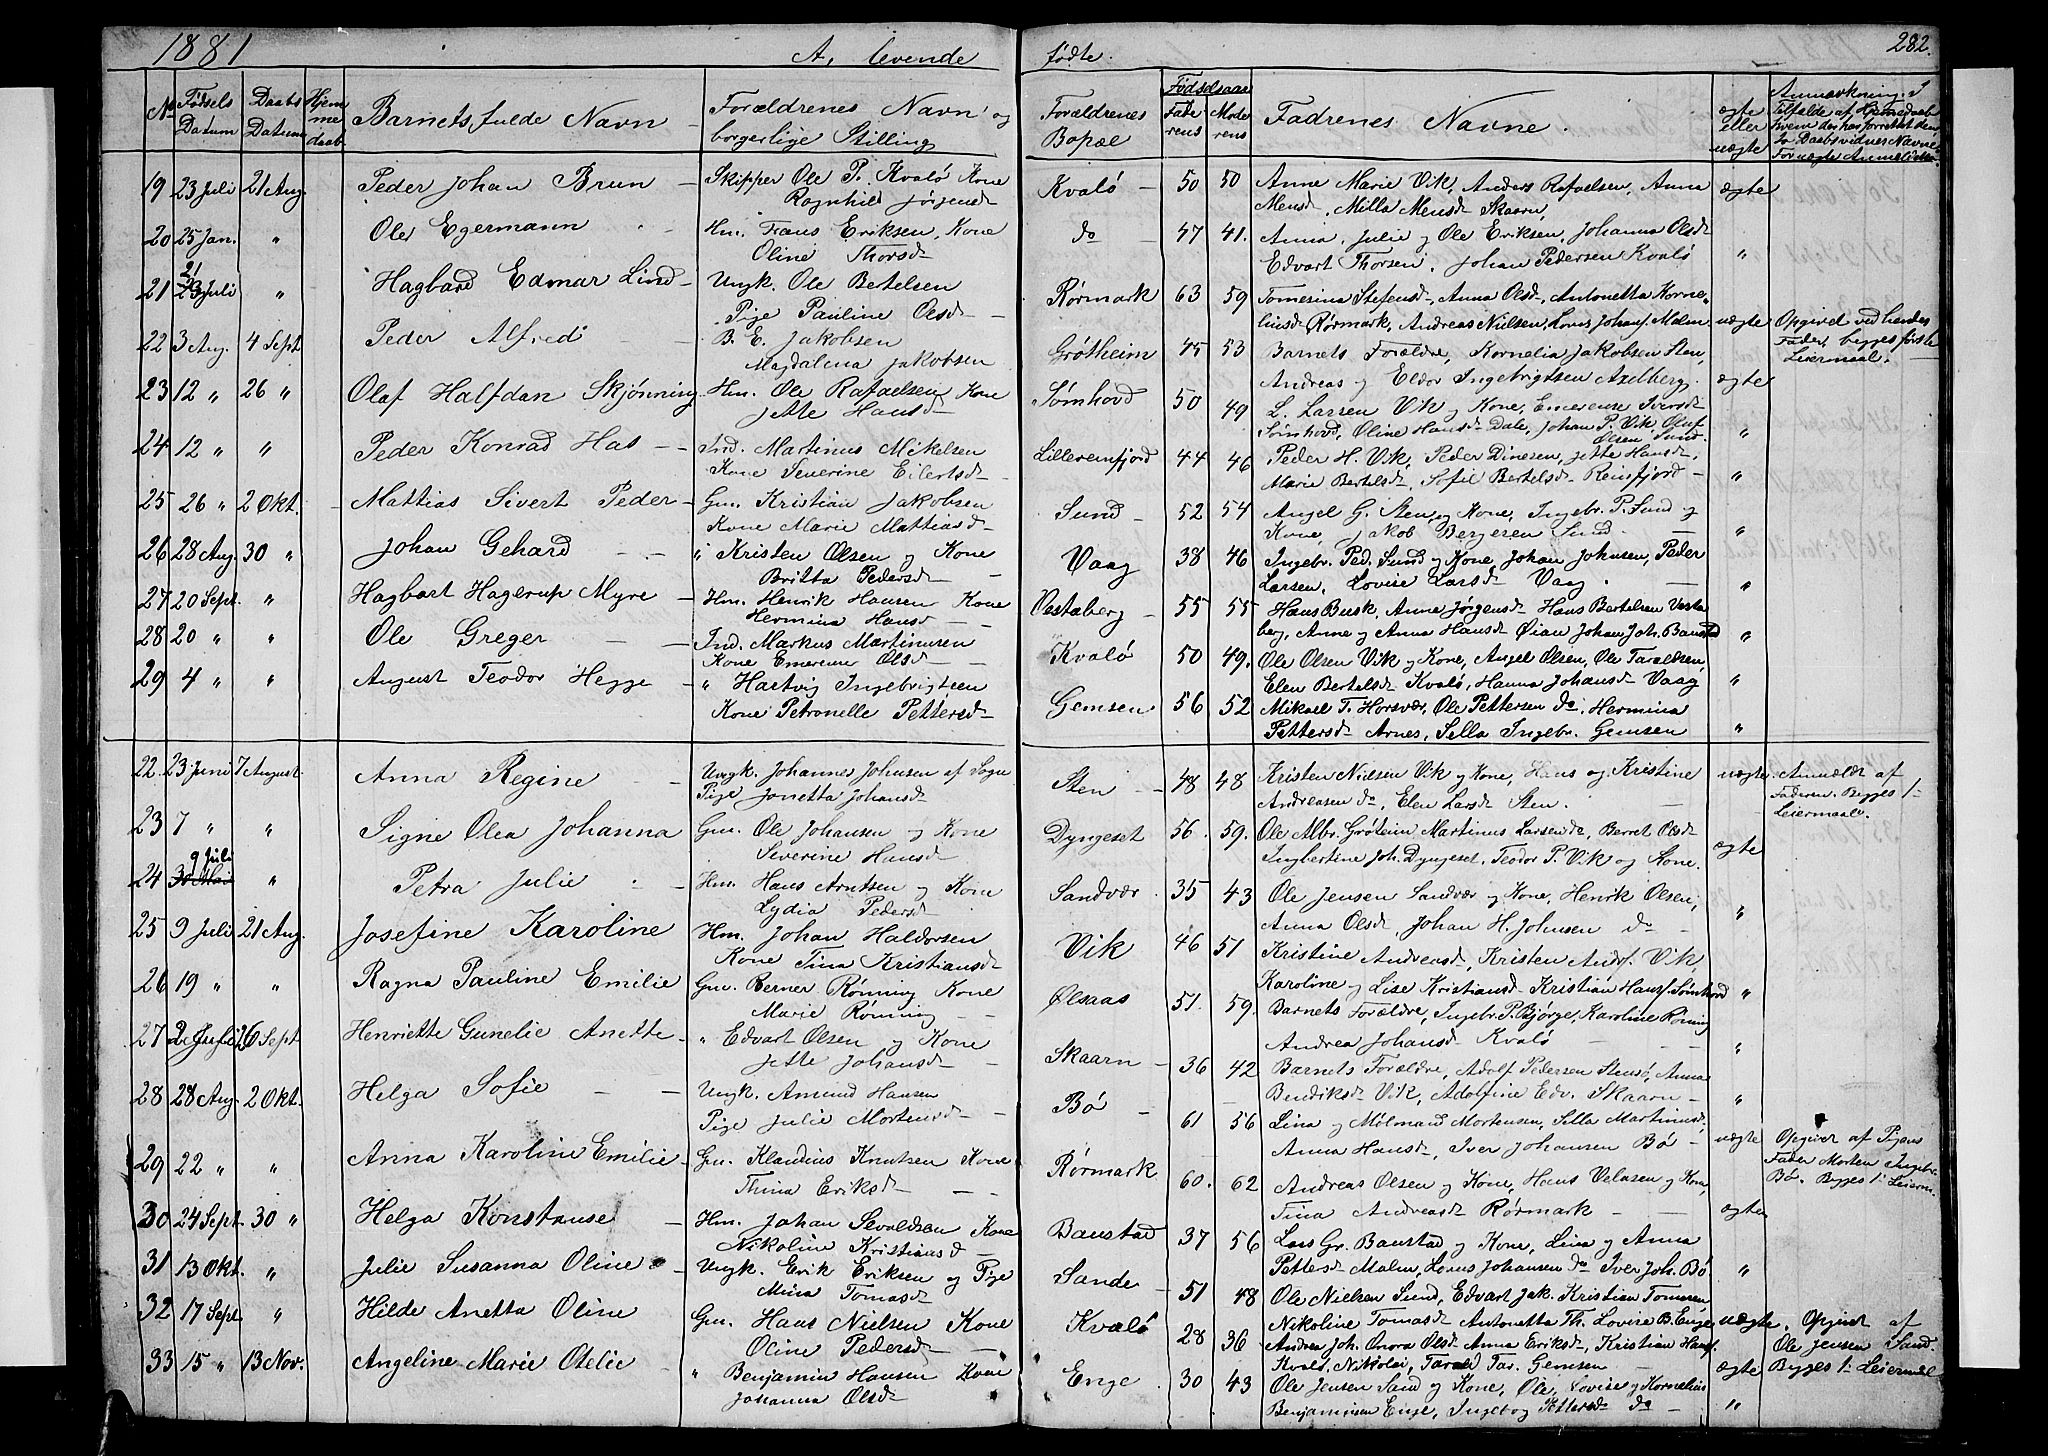 1881
A, levende
fødte.
282.
No
Fødsels Datum
Daabs Datum
Hjemmedaab
Barnets fulde Navn
Forældrenes Navn og borgerlige Stilling
Forældrenes Bopæl
Fødselsaar
Faderens
Moderens
Fadrenes Navne.
ægte eller uægte
Anmærkning. I Tilfælde af Hjemmedaab
19 23 Juli 21 Aug. Peder Johan Brun – Skipper Ole P. Kvalø Kone Kvalø 50 50 Anne Marie Vik, Anders Rafaelsen, Anna ægte
Ragnhild Jørgensd Mensd. Milla Mensd Skaarn,
20 25 Jan. " Ole Egermann Hm. Frans Eriksen, Kone do 47 41. Anna, Julie og Ole Eriksen, Johanna Olsd
Oline Thorsd Edvart Thorsen, Johan Pedersen Kvalø "
21 23 Juli " Hagbard Edmar Lind – Ungk. Ole Betelsen Rørmark 63 59 Tomesina Stefensd, Anna Olsd, Antonetta Korne-
Pige Pauline Olsd liusd Rørmark, Andreas Nielsen, Lovis Johans. Malm uægte Opgivet ved hendes
22 3 Aug. 4 Sept Peder Alfred B. E. Jakobsen Grøtheim 45 53 Barnets Forældre, Kornelia Jakobsen Sten, Fader, begges første
Magdalena Jakobsen Andreas og Eldor Ingebrigtsen Axelberg. ægte Leiermaal.
23 12 " 26 " Olaf Halfdan Skjønning Hm. Ole Rafaelsen Kone Sømhovd 50 49 L. Larsen Vik og Kone, Emerense Iversd
Jette Hansd Sømhovd, Oline Hansd Dale, Johan P. Vik, Oluf Olsen Sund. "
24 12 " " Peder Konrad Has – Ind. Martinus Mikelsen Lillereinfjord 44 46 Peder H. Vik, Peder Dinesen, Jette Hansd,
Kone Severine Eilertsd Marie Bertelsd, Sofie Bertelsd Reinfjord – "
25 26 " 2 Okt. Mattias Sivert Peder – Gm. Kristian Jakobsen Sund – 52 54 Angel G. Sten, og Kone, Ingebr. P. Sund og
Kone Marie Mattiasd Kone, Jakob Bergersen Sund – "
26 28 Aug. 30 " Johan Gehard " Kristen Olsen og Kone Vaag 38 46 Ingebr. Ped. Sund og Kone, Johan Johnsen, Peder
Britta Pedersd Larsen, Lovise Larsd Vaag. – "
27 20 Sept. " Hagbart Hagerup Myre – Hm. Henrik Hansen Kone Vestaberg – 55 55 Hans Busk, Anne Jørgensd Hans Bertelsen Vesta
Hermina Hansd berg, Anne og Anna Hansd Øian Johan Joh. Baustad "
28 20 " " Ole Greger Ind. Markus Martinusen Kvalø 50 49. Ole Olsen Vik og Kone, Angel Olsen, Ole Taraldsen,
Kone Emerense Olsd Elen Bertelsd Kvalø, Hanna Johansd Vaag "
29 4 " " August Teodor Hegge – " Hartvig Ingebrigtsen Gemsen 56 52 Mikael T. Horsvær, Ole Pettersen do, Hermina
Kone Petronelle Pettersd Pettersd Arnes, Sella Ingebr. Gemsen "
22. 23 Juni 7 August. Anna Regine Ungk. Johannes Johnsen af Sogn Sten – 48 48 Kristen Nielsen Vik og Kone, Hans og Kristine uægte Anmeldt af
Pige Jonetta Johansd Andreasen do, Elen Larsd Sten. Faderen. Begges 1ste
23 7 " " Signe Olea Johanna Gm. Ole Johansen og Kone Dyngeset 56. 59. Ole Albr. Grøteim Martinus Larsen do, Berret Olsd Leiermaal.
Severine Hansd Ingbertine Joh. Dyngeset, Teodor P. Vik og Kone. ægte
24 9 Juli " Petra Julie Hm. Hans Arntsen og Kone Sandvær 35 43 Ole Jensen Sandvær og Kone, Henrik Olsen,
Lydia Pedersd Anna Olsd, Johan H. Johnsen do "
25 9 Juli 21 Aug. Josefine Karoline Hm. Johan Haldorsen Vik 46 51 Kristine Andreasd, Kristen Andr. Vik,
Kone Tina Kristiansd Karoline og Lise Kristiansd Kristian Hans. Sømhovd "
26 19 " " Ragna Pauline Emilie Gm. Berner Rønning Kone Ølsaas 51. 59. Barnets Forældre, Ingebr. P. Bjørge, Karoline Røning
Marie Rønning Andrea Johansd Kvalø "
27 2 Juli 26 Sept Henriette Gunelie Anette – " Edvart Olsen og Kone Skaarn – 36 42 Barnets Forældre, Adolf Pedersen Stensø, Anna
Jette Johansd Bendiksd Vik, Adolfine Edv. Skaarn "
28 28 Aug. 2 Okt. Helga Sofie Ungk. Amund Hansen Bø – 61 56 Lina og Mølmand Mortensen, Sella Martinusd,
Pige Julie Mortensd Anna Hansd, Iver Johansen Bø – uægte Opgivet af Pigens
29 22 " " Anna Karoline Emilie – Gm. Klaudius Knutsen Kone Rørmark 60. 62 Andreas Olsen og Kone, Hans Velasen og Kone, Fader Morten Ingebr.
Thina Eriksd Tina Andreasd Rørmark ægte Bø. Begges 1ste Leierm.
30 24 Sept. 30 " Helga Konstanse Hm. Johan Sevaldsen Kone Baustad 37 56 Lars Gr. Baustad og Kone, Lina og Anna
Nikoline Kristiansd Pettersd Malen, Lovis Johansen do Iver Joh. Bø "
31 13 Okt. " Julie Susanna Oline Ungk. Erik Eriksen og Pige Sande 51 48 Ole Nielsen Sund, Edvart Jak. Kristian Tomesen
Mina Tomasd Nikoline Tomasd Antonetta Th. Lovise B. Enge uægte. Opgivet af
32 17 Sept. " Hilde Anetta Oline Gm. Hans Nielsen Kone Kvalø 28 36 Andrea Joh. Onora Olsd Anna Eriksd, Kristian Hans. Ole Jensen Sand.
Oline Pedersd Kvalø, Nikolai, Tarald Tar. Gemsen ægte Begges 1ste Leiermaal
33 15 " 13 Nov. Angeline Marie Otelie " Benjamin Hansen Kone Enge 30 43 Ole Jensen Sand og Kone, Ole, Lovise og Kornelius
Johanna Olsd Benjaminsen Enge, Ingebog Pettersd do "